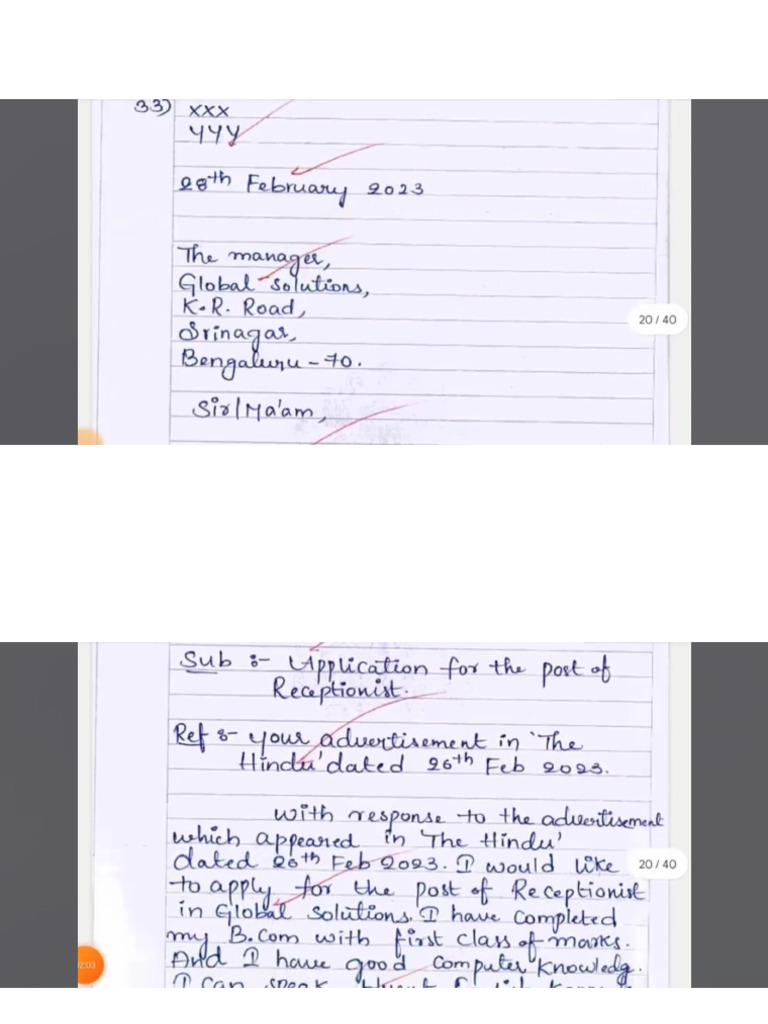 33) XXX
YYY
28th February 2023
The manager,
Global solutions,
K.R. Road,
Srinagar,
Bengaluru - 70.
20 / 40
Sir/Ma'am,
Sub :- Application for the post of
Receptionist.
Ref :- your advertisement in 'The
Hindu' dated 26th Feb 2023.
with response to the advertisement
which appeared in 'The Hindu'
dated 26th Feb 2023. I would like
20 / 40
to apply for the post of Receptionist
in Global solutions. I have completed
my B.Com with first class of marks.
And I have good computer knowledg.
I can speak